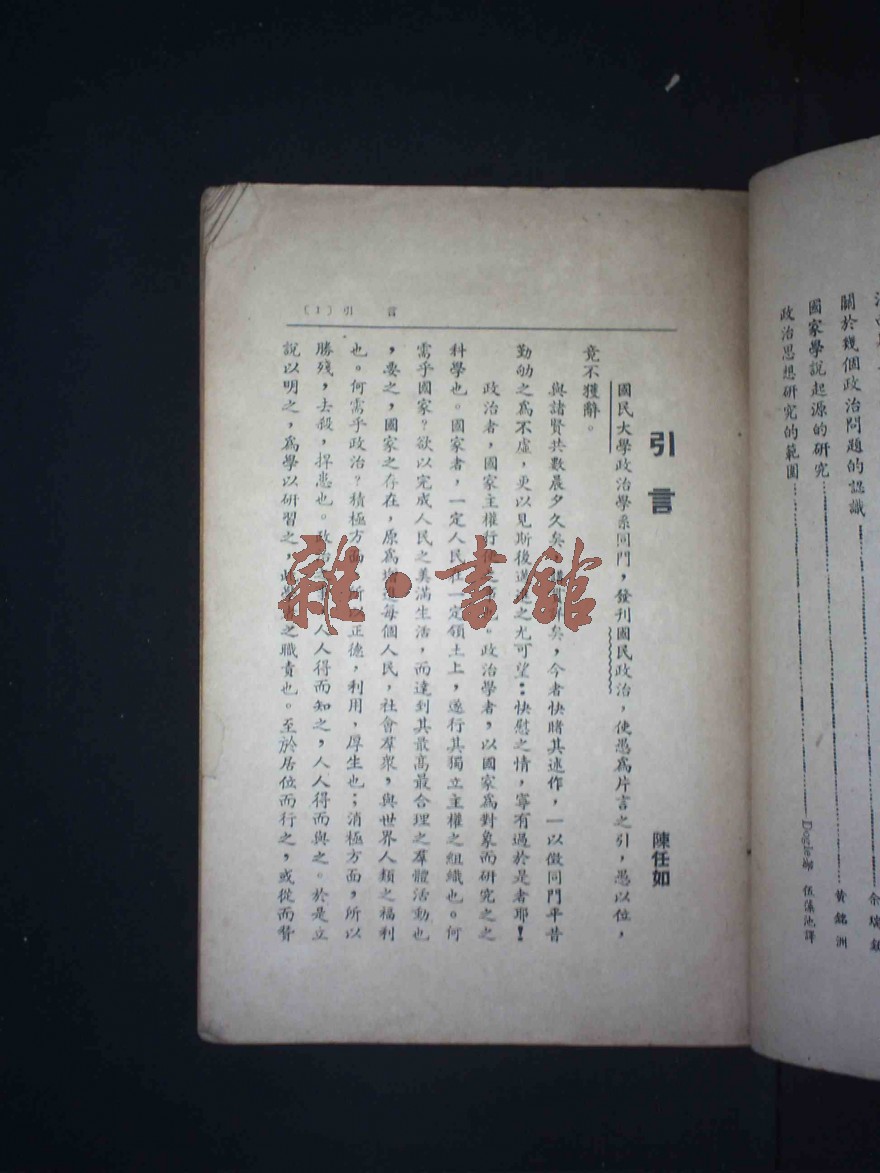 關於幾個政治問題的認識 黃銘洲
國家學說起源的研究 Dogle著 伍藻池譯
政治思想研究的範圍
引言
(1)
引言
陳任如
國民大學政治學系同門，發刊國民政治，使愚爲片言之引，愚以位，
竟不獲辭。
與諸賢共數晨夕久矣，矣，今者快睹其述作，一以徵同門平昔
勤劬之爲不虛，更以見斯後進之尤可望：快慰之情，寧有過於是者耶！
政治者，國家主權行也。政治學者，以國家爲對象而研究之之
科學也。國家者，一定人民在一定領土上，遂行其獨立主權之組織也。何
需乎國家？欲以完成人民之美滿生活，而達到其最高最合理之羣體活動也
，要之，國家之存在，原爲增每個人民，社會羣衆，與世界人類之福利
也。何需乎政治？積極方面，所以正德，利用，厚生也；消極方面，所以
勝殘，去殺，捍患也。政治人人得而知之，人人得而與之。於是立
說以明之，爲學以研習之，此之職責也。至於居位而行之，或從而贊
雜·書館